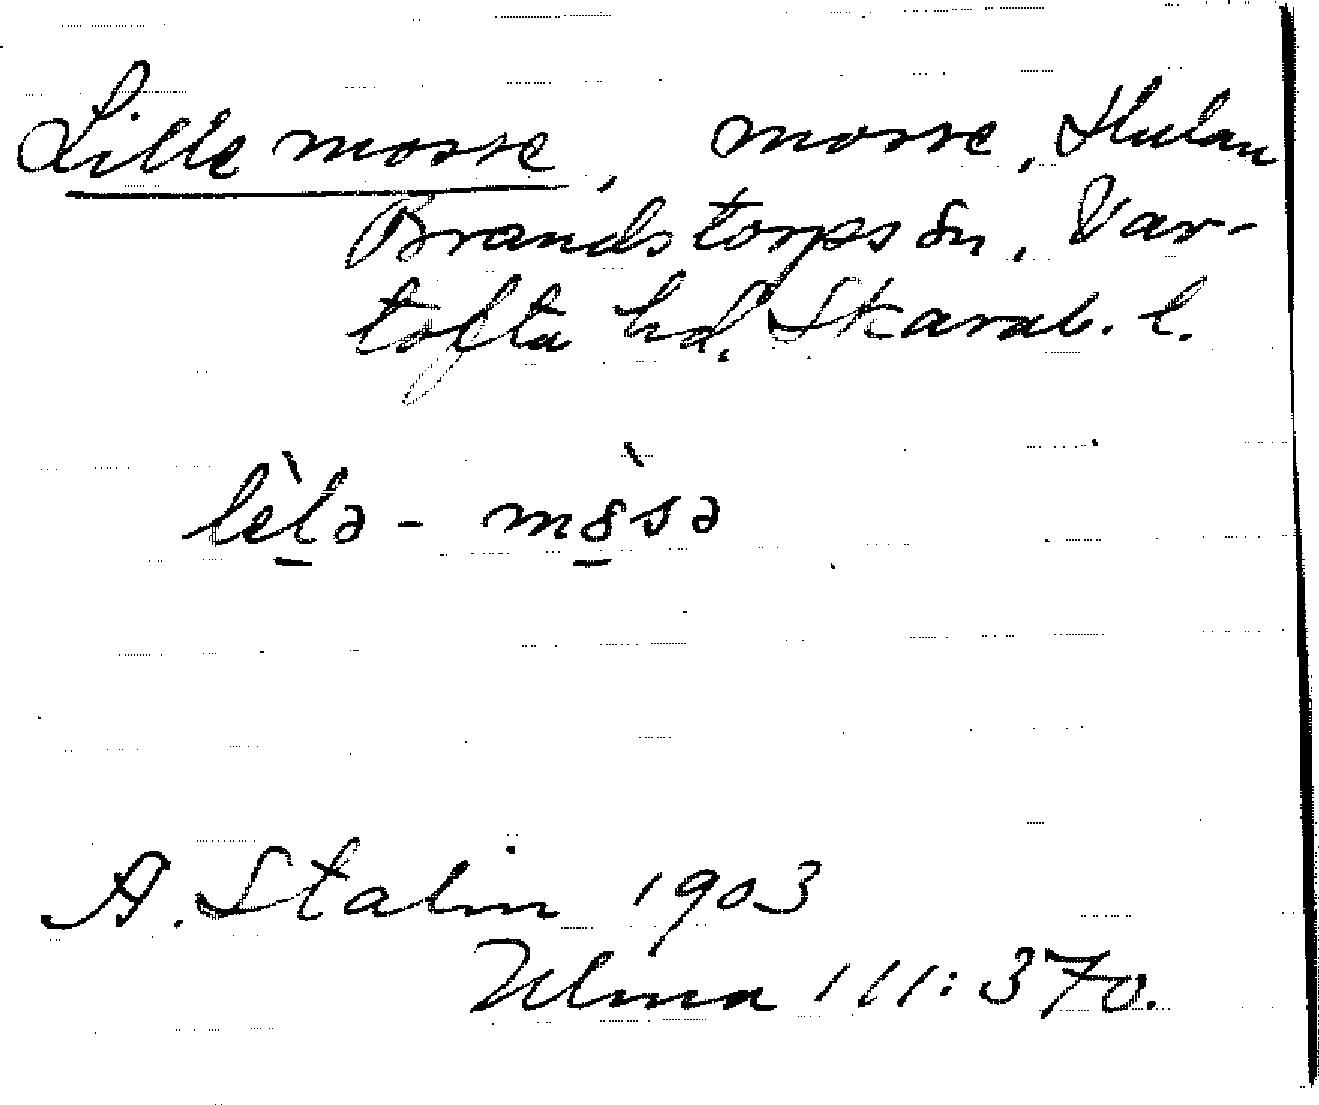 Lille mosse, mosse, Hulan
Brandstorps sn, Var-
tofta hd. Skarab. l.
lèlə - mòsə
A. Stalin 1903
Ulma 111:370.